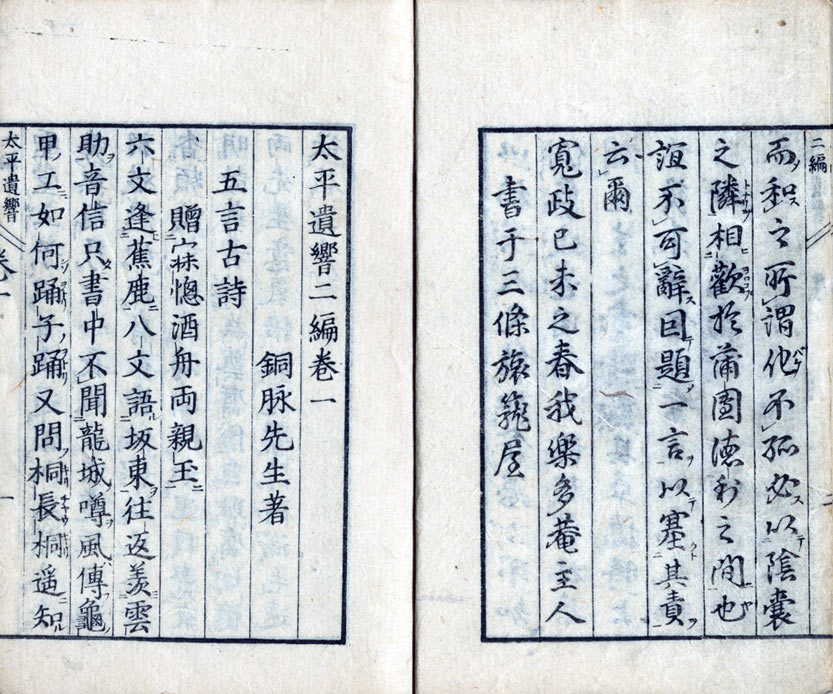 二編
而和之所謂他不孤必以陰嚢
之隣相歡於蒲團德利之間也
誼不可辭因題一言以塞其責
云爾
寬政己未之春我樂多菴主人
書于三條旅籠屋
太平遺響二編卷一
銅脉先生著
五言古詩
贈寐惚酒舟両親玉
六文逢蕉鹿八文語坂東往返羨雲
助音信只書中不聞龍城噂風傳龜
甲工如何踊子踊又問桐長桐遥知
太平遺響
卷一
一